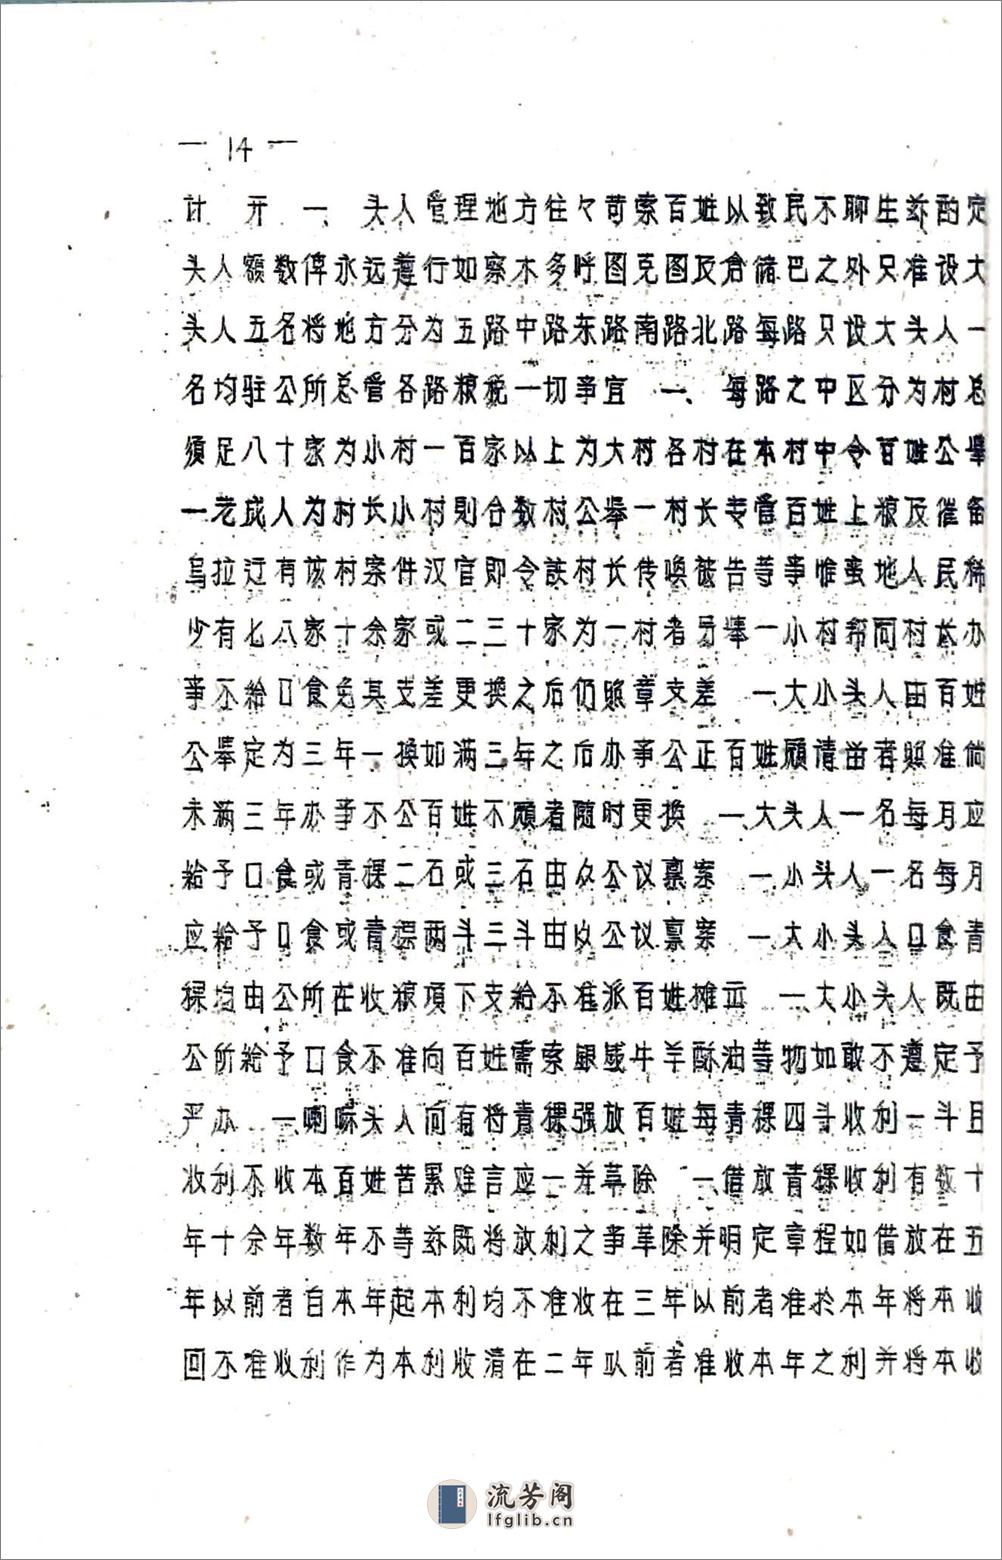 — 14 —
计开 一、头人管理地方往々苛索百姓以致民不聊生兹酌定
头人额数俾永远遵行如察木多呼图克图及倉储巴之外只准设大
头人五名将地方分为五路中路东路南路北路每路只设大头人一
名均驻公所总管各路粮税一切事宜 一、每路之中区分为村总
须足八十家为小村一百家以上为大村各村在本村中令百姓公举
一老成人为村长小村则合数村公举一村长专管百姓上粮及催备
乌拉过有该村案件汉官即令該村长传唤被告等事惟蛮地人民稀
少有七八家十余家或二三十家为一村者另举一小村帮同村长办
事不给口食免其支差更换之后仍照章支差 一、大小头人由百姓
公举定为三年一换如满三年之后办事公正百姓顾请留者照准倘
未满三年办事不公百姓不顾者随时更换 一、大头人一名每月应
給予口食或青稞二石或三石由众公议禀案 一、小头人一名每月
应給予口食或青稞两斗三斗由众公议禀案 一、大小头人口食青
稞均由公所在收粮項下支給不准派百姓摊 一、大小头人既由
公所給予口食不准向百姓需索银钱牛羊酥油等物如敢不遵定予
严办 一、喇嘛头人向有将青稞强放百姓每青稞四斗收利一斗且
收利不收本百姓苦累难言应一并革除 一、借放青稞收利有数十
年十余年数年不等兹既将放利之事革除并明定章程如借放在五
年以前者自本年起本利均不准收在三年以前者准於本年将本收
回不准收利作为本利收清在二年以前者准收本年之利并将本收
流芳阁
lfglib.cn